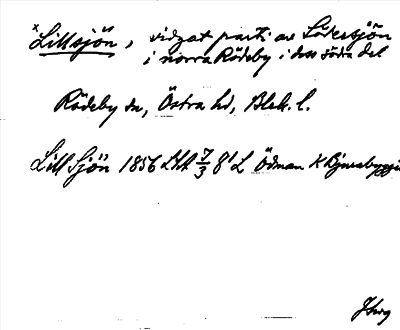 x Lillsjön, vidgat parti av Södersjön
i norra Rödeby i dess södra del
Rödeby sn, Östra hd, Blek. l.
Lill Sjön 1856 LSA 7/3 8' L Ödman K Bjurabygget